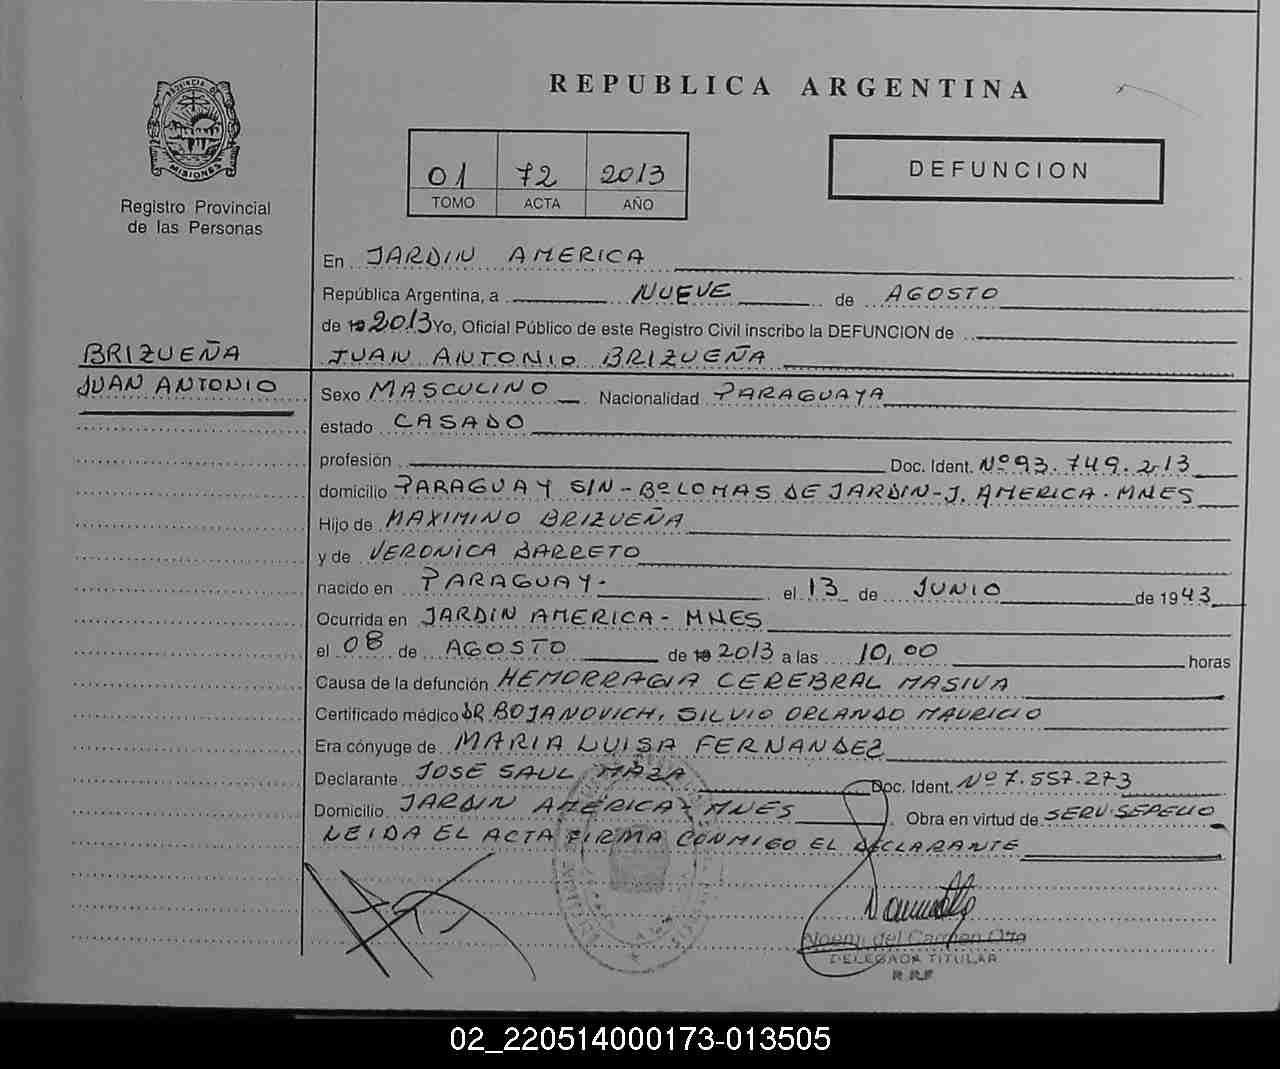 REPUBLICA ARGENTINA
PROVINCIA DE
MISIONES
Registro Provincial
de las Personas
01 72 2013
TOMO ACTA AÑO
DEFUNCION
En JARDIN AMERICA
República Argentina, a NUEVE de AGOSTO
de 19 2013 Yo, Oficial Público de este Registro Civil inscribo la DEFUNCION de
JUAN ANTONIO BRIZUEÑA
BRIZUEÑA
JUAN ANTONIO
Sexo MASCULINO Nacionalidad PARAGUAYA
estado CASADO
profesión Doc. Ident. Nº 93.749.213
domicilio PARAGUAY S/N - Bº LOMAS DE JARDIN - J. AMERICA - MNES
Hijo de MAXIMINO BRIZUEÑA
y de VERONICA BARRETO
nacido en PARAGUAY- el 13 de JUNIO de 1943
Ocurrida en JARDIN AMERICA - MNES
el 08 de AGOSTO de 19 2013 a las 10,00 horas
Causa de la defunción HEMORRAGIA CEREBRAL MASIVA
Certificado médico DR BOJANOVICH, SILVIO ORLANDO MAURICIO
Era cónyuge de MARIA LUISA FERNANDEZ
Declarante JOSE SAUL MAZA Doc. Ident. Nº 7.557.273
Domicilio JARDIN AMERICA - MNES Obra en virtud de SERV. SEPELIO
LEIDA EL ACTA FIRMA CONMIGO EL DECLARANTE
Noemi del Carmen Otto
DELEGADA TITULAR
R.P.P
02_220514000173-013505